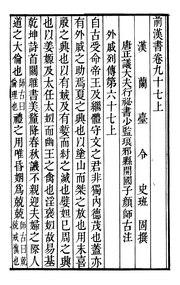 前漢書卷九十七上
漢蘭臺令史班固撰
唐正議大夫行祕書少監琅邪縣開國子顏師古注
外戚列傳第六十七上
自古受命帝王及繼體守文之君非獨內德茂也蓋亦
有外戚之助焉夏之興也以塗山而桀之放也用末喜
殷之興也以有娀及有㜪而紂之滅也嬖妲己周之興
也以姜嫄及太任太姒而幽王之禽也淫褒姒故易基
乾坤詩首關雎書美釐降春秋譏不親迎夫婦之際人
道之大倫也師古曰倫理也禮之用唯昏姻為兢兢師古曰兢兢戒慎也